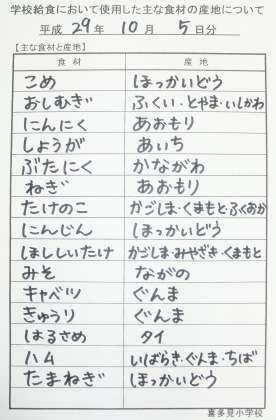 学校給食において使用した主な食材の産地について
平成 29年 10月 5日分
【主な食材と産地】
食材 産地
こめ ほっかいどう
おしむぎ ふくい・とやま・いしかわ
にんにく あおもり
しょうが あいち
ぶたにく かながわ
ねぎ あおもり
たけのこ かごしま・くまもと・ふくおか
にんじん ほっかいどう
ほししいたけ かごしま・みやざき・くまもと
みそ ながの
キャベツ ぐんま
きゅうり ぐんま
はるさめ タイ
ハム いばらき・ぐんま・ちば
たまねぎ ほっかいどう
喜多見小学校